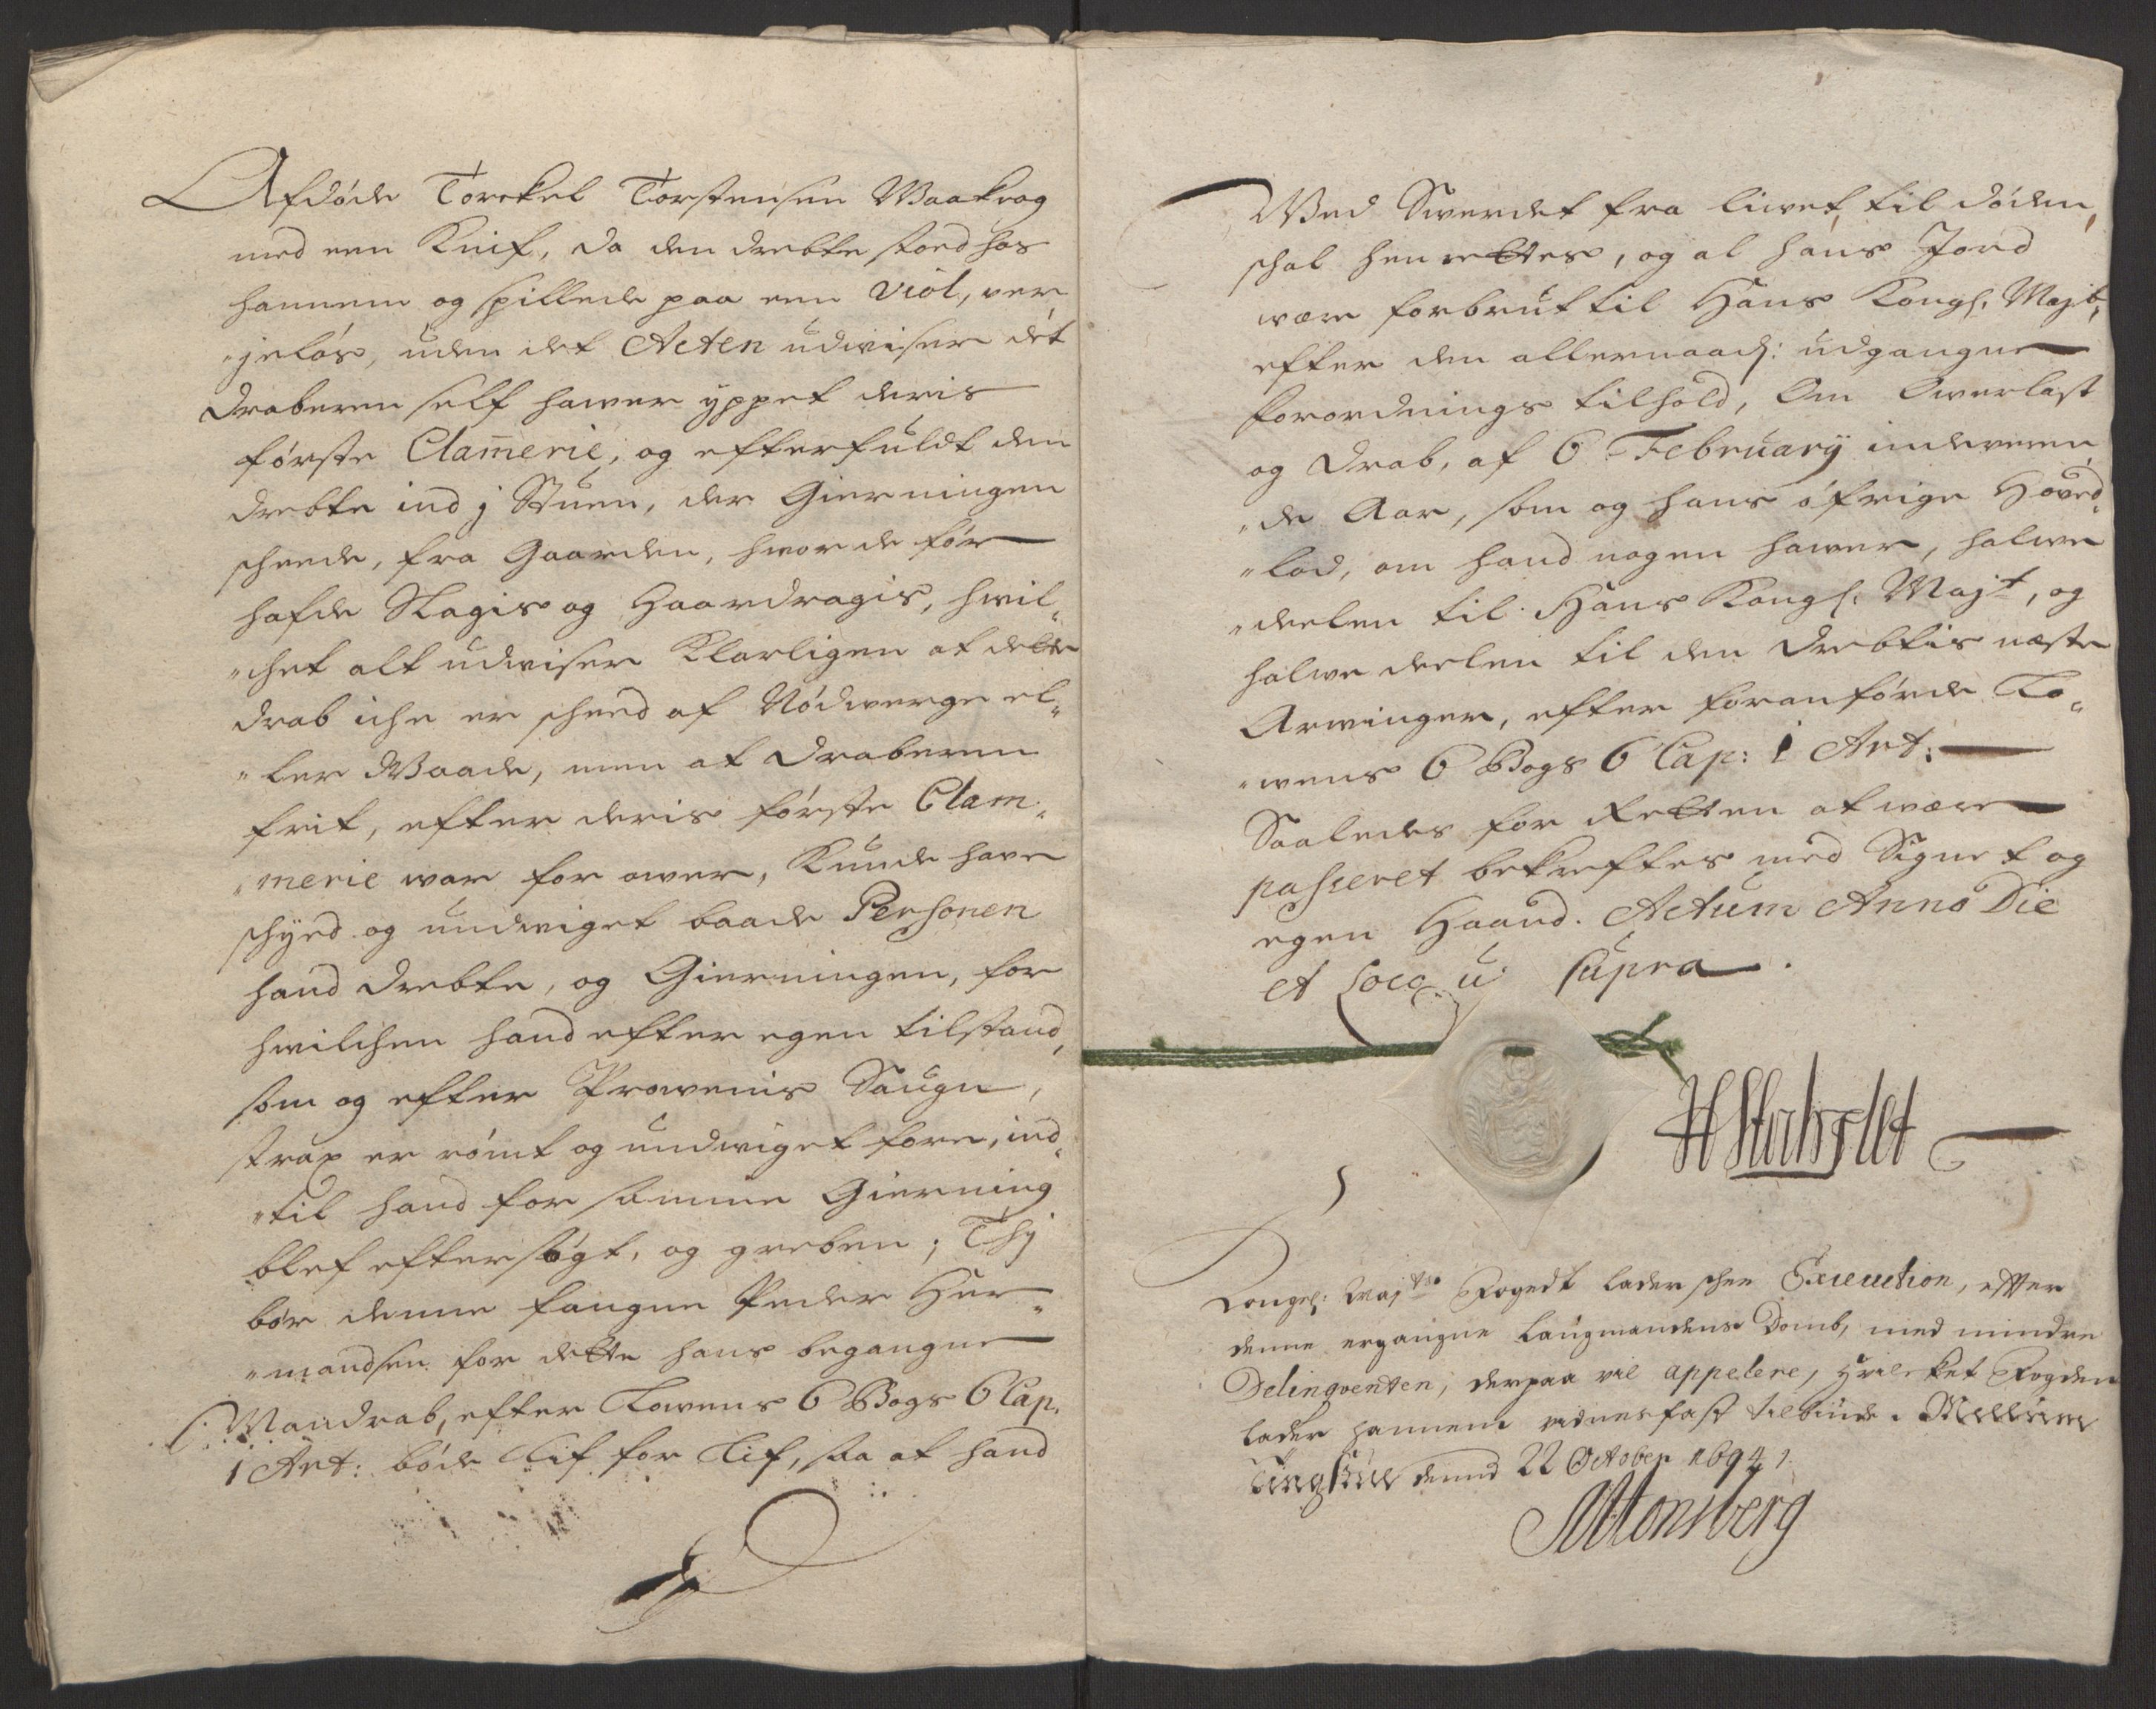 Afdøde Torckel Torstensen Waakrog
med een Knif, da den drebte stoed hos
hannem og spillede paa een Viol, ver
"jeløs, uden det Acten udwiser det
Draberen self hawer yppet deris
første Clam̄erie, og efterfuldt den
drebte ind j Stuen, der Gierningen
scheede, fra Gaarden, hwor de før
hafde Slagis og Haardragis, hwil„
„chet alt udwiser Klarligen at dette
drab iche er scheed af Nødwerge el„
„ler Waade, men at Draberen
frit, efter deris første Clam„
„merie war for ower, Kunde have
schyed og undwiget baade Personen
hand drebte, og Gierningen, for
hwilchen hand efter egen tilstand,
som og efter Prowenis Saugn,
strax er rømt og undwiget fore, ind„
„til hand for samme Gierning
blef eftersøgt, og greben; Thj
bør denne fangne Peder Her„
„mandsen for dette hans begangne
Mandrab, efter Lowens 6 Bogs 6 Cap.
1 Art: bøde Lif for Lif, saa at hand
Med Swerdet fra liwet til døden,
schal henrettes, og al hans Jord
være forbrut til Hans Kongl. Majt,
efter den allernaad: udgangne
forordnings tilhold, Om Owerlast
og Drab, af 6 February indeweren„
„de Aar, som og hans øfrige Howed„
„lod, om hand nogen hawer, halwe
„deelen til Hans Kongl. Majt, og
halwe deelen til den Drebtis næste
Arwinger, efter foranførde Lo„
„wens 6 Bogs 6 Cap: 1 Art:
Saaledes for Retten at være
passeret bekreftes med Signet og
egen Haand. Actum Anno Die
et Loco ut supra.
Kongel: Majts Fogedt lader schee Execution, efter
denne ergangne Laugmandens Domb, med mindre
Delinqventen, derpaa vil appelere, hvilcket Fogden
lader hannem vidnesfast tilbiude.
dend 22 October 1694
Tonsberg